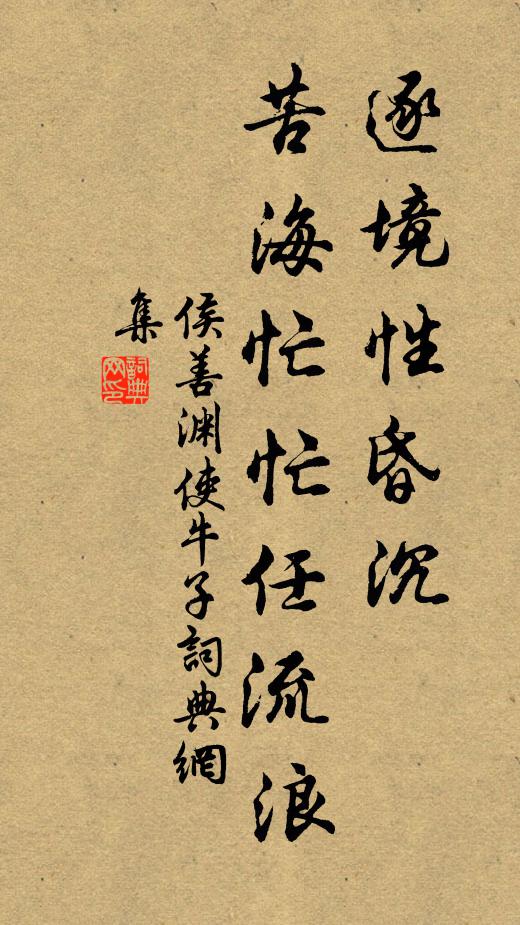 逐境性昏沉
苦海忙忙任流浪
侯善渊使牛子詞典網
集
詞典
网印